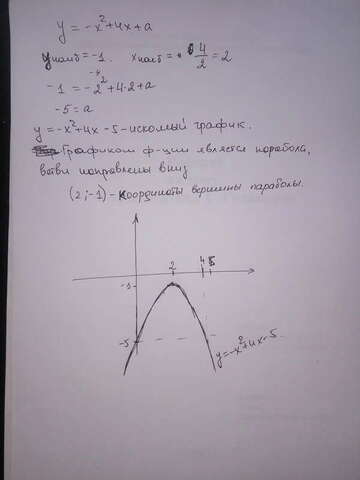 y = -x²+4x+a
yнаиб = -1. xнаиб = 4/2 = 2
-4
-1 = -2²+4·2+a
-5 = a
y = -x²+4x-5 - искомый график.
Графиком ф-ции является парабола,
ветви направлены вниз
(2;-1) - координаты вершины параболы.
2 4 5
-1
-5
y=-x²+4x-5